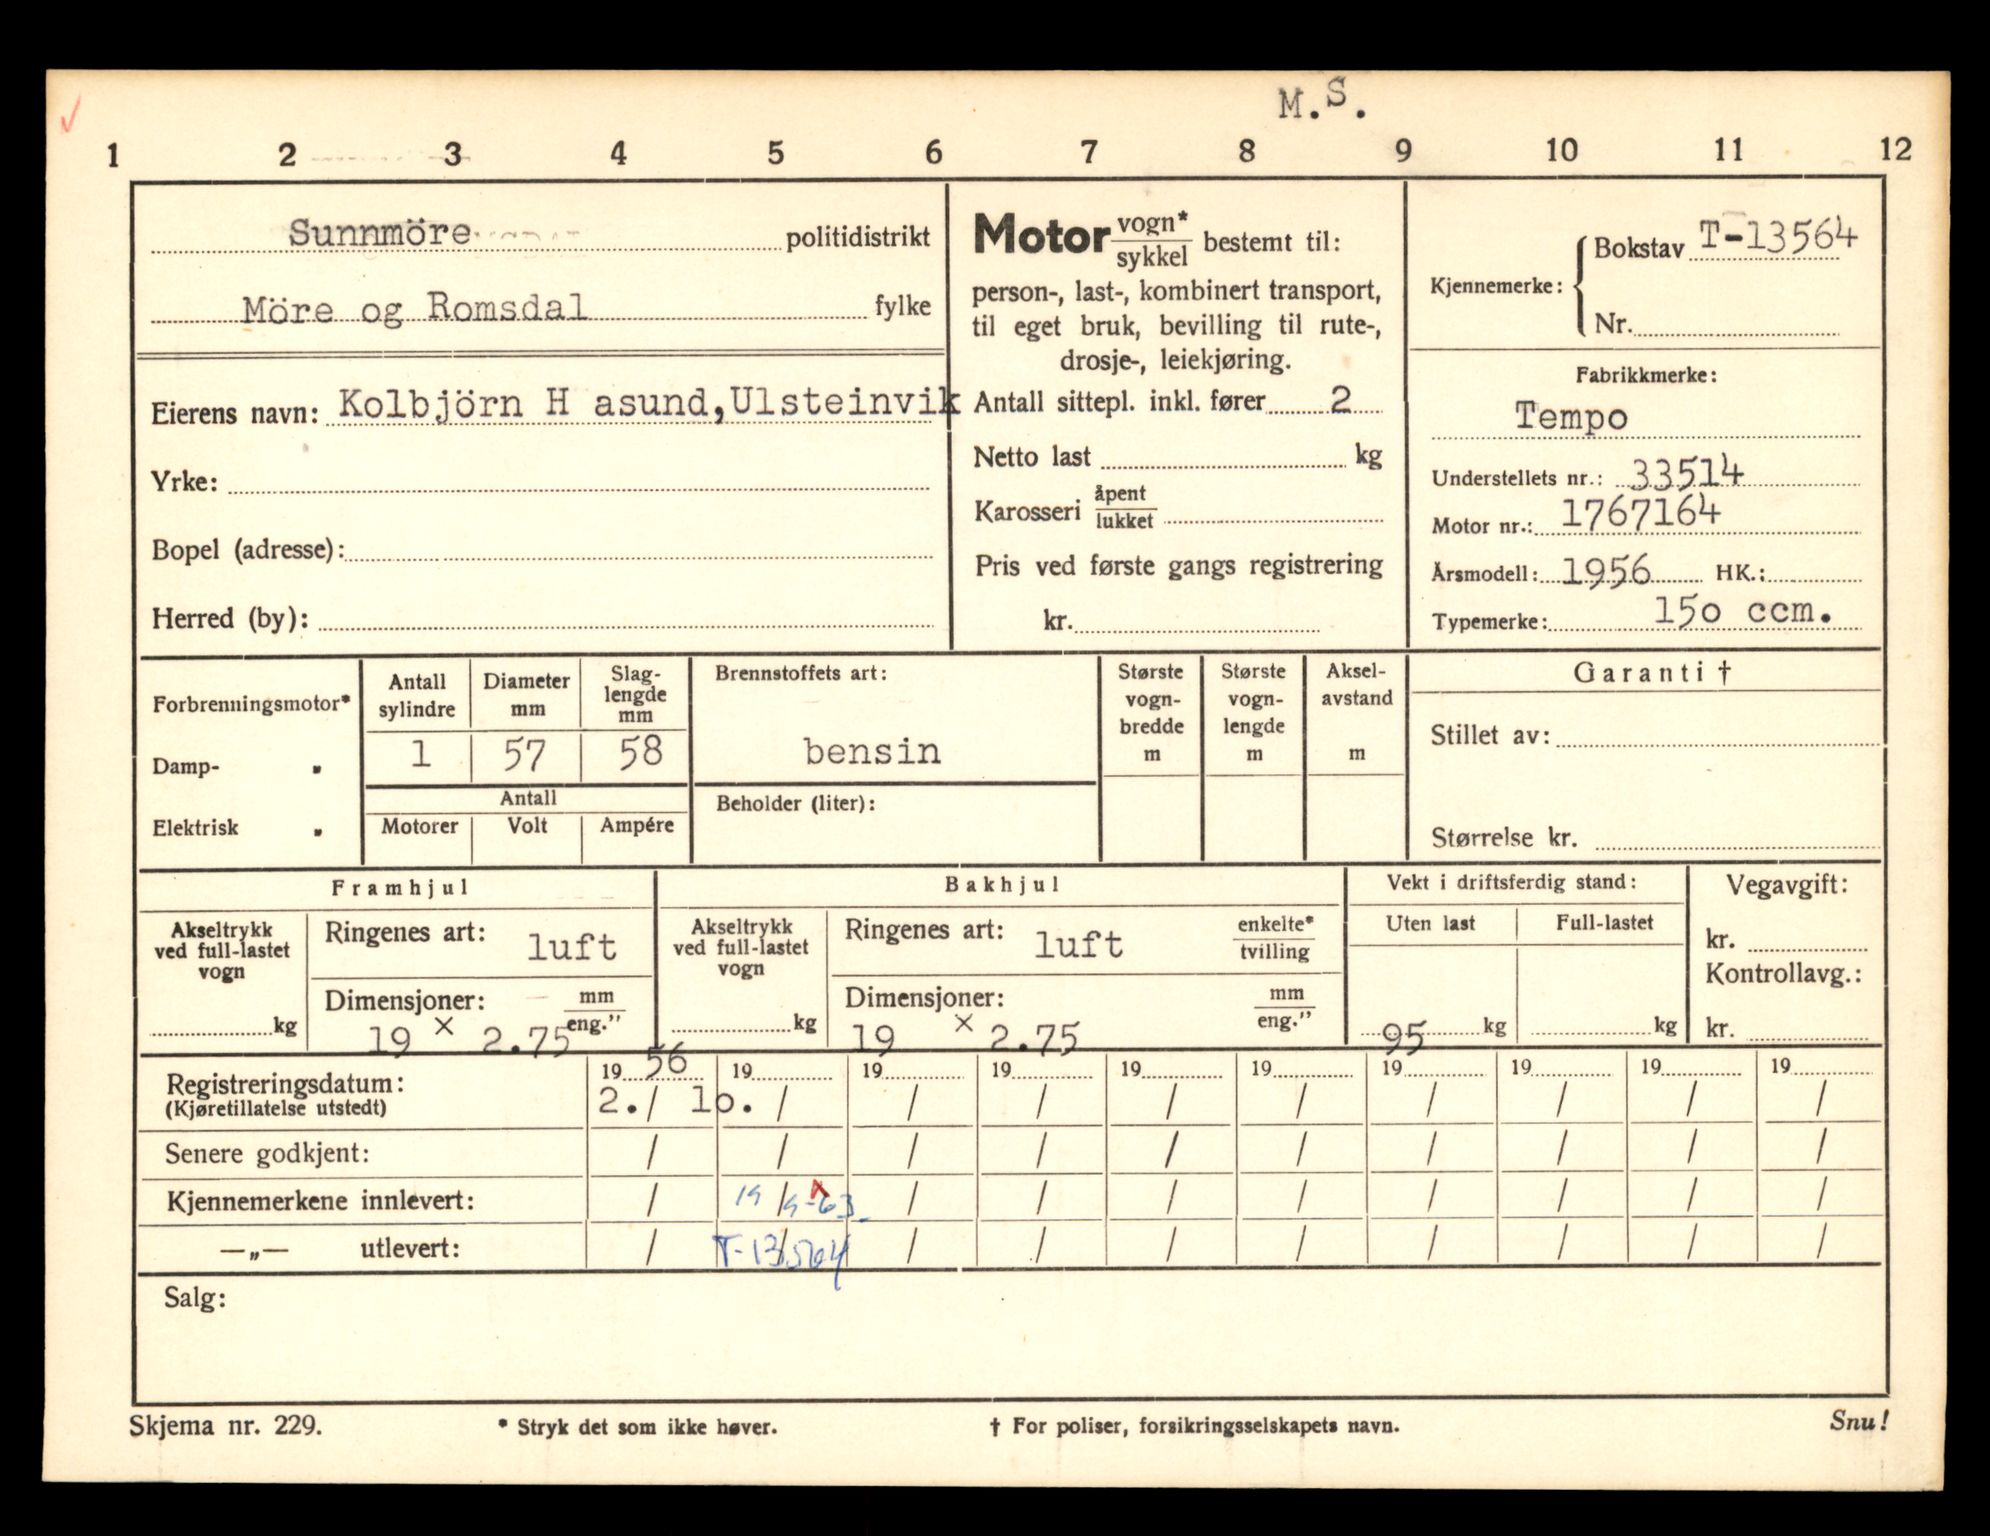 M.S.
1 2 3 4 5 6 7 8 9 10 11 12
Sunnmöre politidistrikt
Möre og Romsdal fylke
Eierens navn: Kolbjörn H asund, Ulsteinvik
Yrke:
Bopel (adresse):
Herred (by):
Motor vogn*/sykkel bestemt til:
person-, last-, kombinert transport,
til eget bruk, bevilling til rute-,
drosje-, leiekjøring.
Antall sittepl. inkl. fører 2
Netto last kg
Karosseri åpent/lukket
Pris ved første gangs registrering
kr.
Kjennemerke: Bokstav T-13564
Nr.
Fabrikkmerke:
Tempo
Understellets nr.: 33514
Motor nr.: 1767164
Årsmodell: 1956 HK.:
Typemerke: 15o ccm.
Forbrenningsmotor*
Damp- „
Elektrisk „
Antall sylindre
1
Diameter mm
57
Slag-
lengde
mm
58
Antall
Motorer Volt Ampére
Brennstoffets art:
bensin
Beholder (liter):
Største
vogn-
bredde
m
Største
vogn-
lengde
m
Aksel-
avstand
m
Garanti †
Stillet av:
Størrelse kr.
Framhjul
Akseltrykk
ved full-lastet
vogn
kg
Ringenes art: luft
Dimensjoner: mm/eng."
19 x 2.75
Bakhjul
Akseltrykk
ved full-lastet
vogn
kg
Ringenes art: luft enkelte*/tvilling
Dimensjoner: mm/eng."
19 x 2.75
Vekt i driftsferdig stand:
Uten last Full-lastet
95 kg kg
Vegavgift:
kr.
Kontrollavg.:
kr.
Registreringsdatum: 19 56 19 19 19 19 19 19 19 19 19
(Kjøretillatelse utstedt) 2./ 1o. / / / / / / / / /
Senere godkjent: / / / / / / / / / /
Kjennemerkene innlevert: / 19/9-63. / / / / / / / /
—„— utlevert: / T-13564 / / / / / / / /
Salg:
Skjema nr. 229. * Stryk det som ikke høver. † For poliser, forsikringsselskapets navn. Snu!